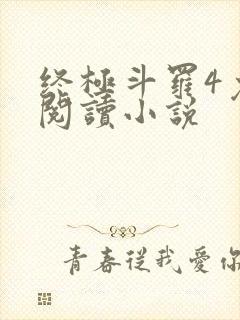 终極斗羅4
閱讀小説
青春從我愛你